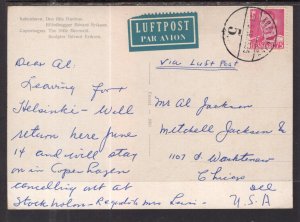 København. Den lille Havfrue.
Billedhugger Edvard Eriksen.
Copenhagen. The little Mermaid.
Sculptor Edvard Eriksen.
LUFTPOST
PAR AVION
5
75
Dear Al.
Leaving for
Helsinki - Will
return here June
14 and will stay
on in Copenhagen
cancelling out at
Stockholm - Regards mrs
via Luft Post
Mr Al Jackson
Mitchell Jackson &
1107 S Washtenaw
Chicago
Ill
U.S.A